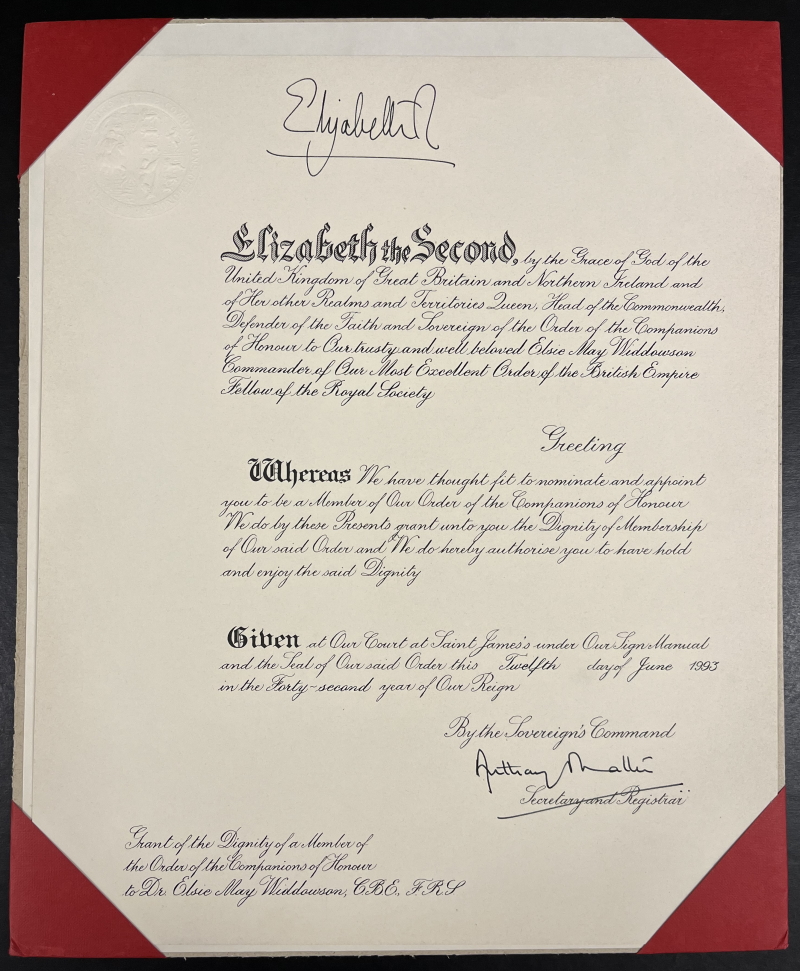 Elizabeth R
Elizabeth the Second, by the Grace of God of the
United Kingdom of Great Britain and Northern Ireland and
of Her other Realms and Territories Queen, Head of the Commonwealth,
Defender of the Faith and Sovereign of the Order of the Companions
of Honour to Our trusty and well beloved Elsie May Widdowson
Commander of Our Most Excellent Order of the British Empire
Fellow of the Royal Society
Greeting
Whereas We have thought fit to nominate and appoint
you to be a Member of Our Order of the Companions of Honour
We do by these Presents grant unto you the Dignity of Membership
of Our said Order and We do hereby authorise you to have hold
and enjoy the said Dignity
Given at Our Court at Saint James's under Our Sign Manual
and the Seal of Our said Order this Twelfth day of June 1993
in the Forty-second year of Our Reign
By the Sovereign's Command
Anthony
Secretary and Registrar
Grant of the Dignity of a Member of
the Order of the Companions of Honour
to Dr. Elsie May Widdowson, CBE, FRS